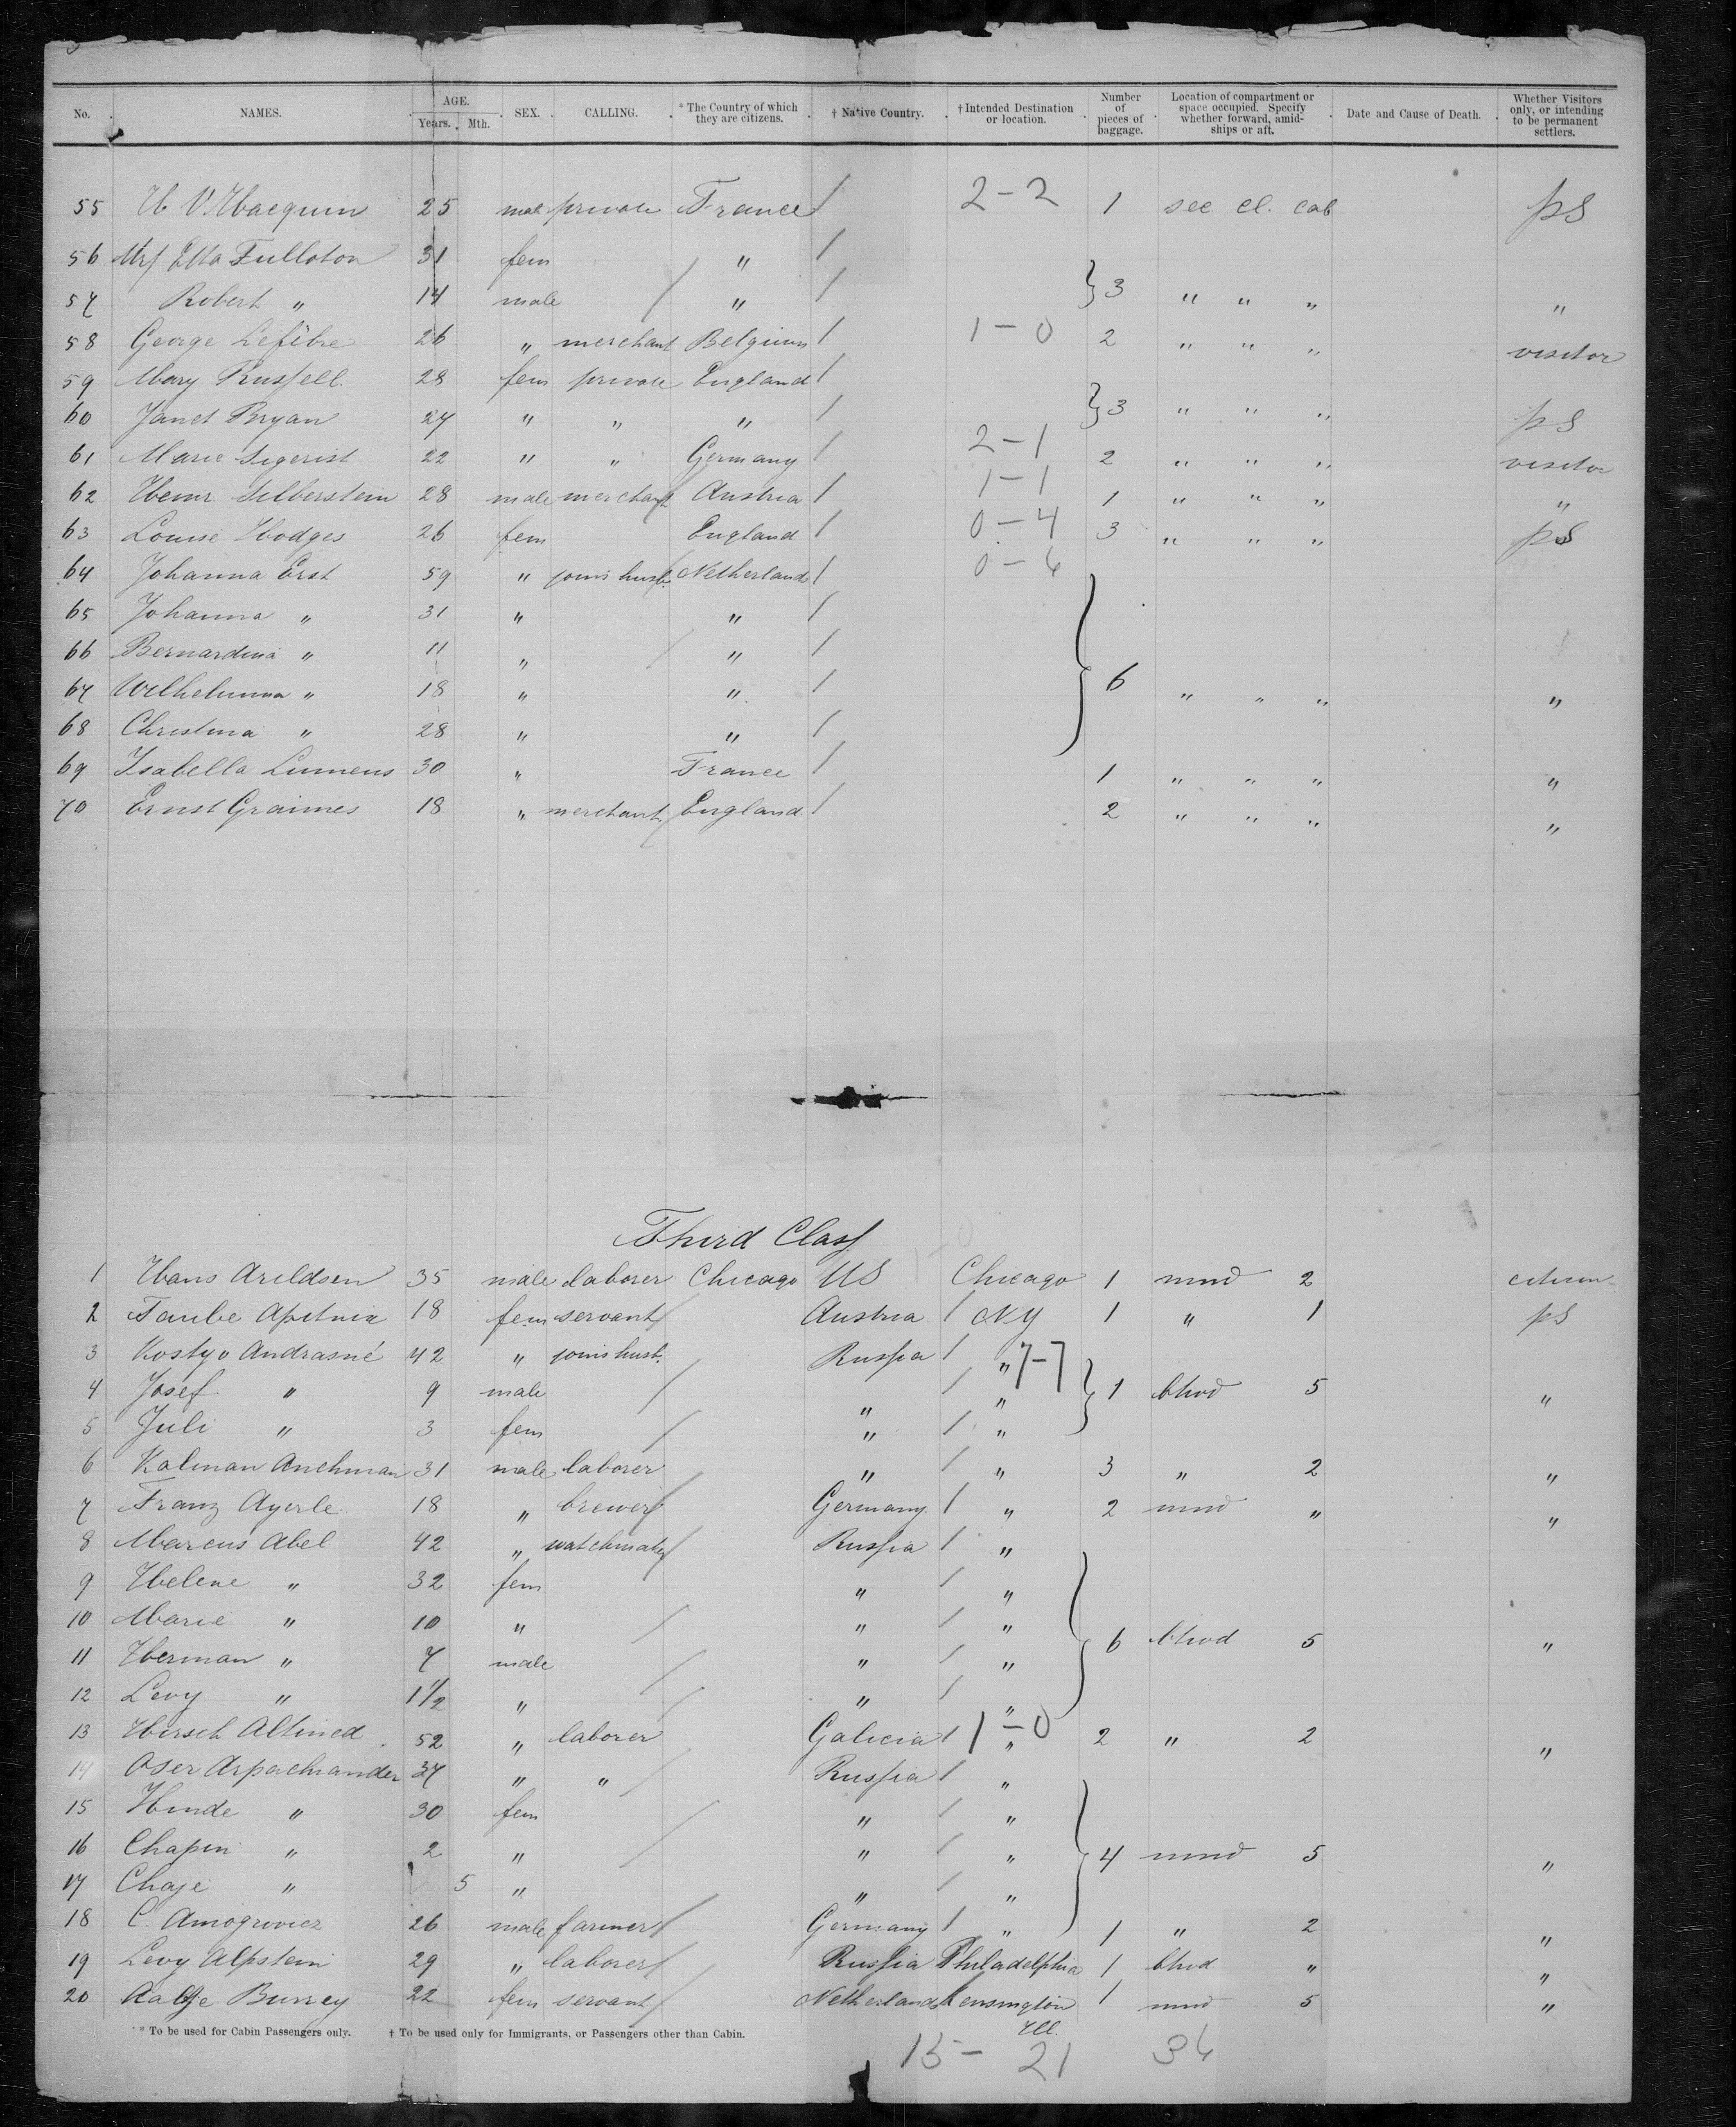 No. NAMES. AGE. Years. Mth. SEX. CALLING. * The Country of which they are citizens. † Native Country. † Intended Destination or location. Number of pieces of baggage. Location of compartment or space occupied. Specify whether forward, amidships or aft. Date and Cause of Death. Whether Visitors only, or intending to be permanent settlers.
55 H V. Hacquin 25 male private France / 2 - 2 1 sec cl. cab pS
56 Mrs Etta Fulloton 31 fem " /
57 Robert " 14 male / " / } 3 " " " "
58 George Lefèbre 26 " merchant Belgium / 1 - 0 2 " " " visitor
59 Mary Russell. 28 fem private England /
60 Janet Bryan 27 " " " / } 3 " " " pS
61 Marie Sigerist 22 " " Germany / 2 - 1 2 " " " visitor
62 Heinr Silberstein 28 male merchant Austria / 1 - 1 1 " " " "
63 Louise Hodges 26 fem England / 0 - 4 3 " " " pS
64 Johanna Erst 59 " joins husb. Netherland / 0 - 6
65 Johanna " 31 " " /
66 Bernardina " 11 " / " /
67 Wilhelmina " 18 " " / } 6 " " " "
68 Christina " 28 " " /
69 Isabella Lumens 30 " France / 1 " " " "
70 Ernst Graimes 18 " merchant / England / 2 " " " "
Third Class
1 Hans Arildsen 35 male laborer Chicago US Chicago 1 mnd 2 citizen
2 Taube 18 fem servant / Austria / NY 1 " 1 pS
3 Kostyo Andrasné 42 " joins husb. Russia / " 7-7
4 Josef " 9 male / " / " } 1 bhvd 5 "
5 Juli " 3 fem / " / "
6 Kalman Anchman 31 male laborer / " / " 3 " 2 "
7 Franz Ayerle 18 " brewer / Germany / " 2 mnd " "
8 Marcus Abel 42 " watchmaker / Russia / "
9 Helene " 32 fem " / "
10 Marie " 10 " / " / " } 6 bhvd 5 "
11 Herman " 7 male / " / "
12 Levy " 1 1/2 " / " / "
13 Hirsch Altined 52 " laborer Galicia / 1 - 0 " 2 " 2 "
14 Oser Arpachiander 37 " " / Russia / "
15 Hinde " 30 fem / " / "
16 Chapin " 2 " / " / " } 4 mnd 5 "
17 Chaje " 5 " " / "
18 C. Amogrovicz 26 male farmer / Germany / " 1 " 2 "
19 Levy Alpstein 29 " laborer / Russia Philadelphia 1 bhvd " "
20 Aaltje Burrey 22 fem servant / Netherland Kensington 1 mnd 5 "
* To be used for Cabin Passengers only. † To be used only for Immigrants, or Passengers other than Cabin. Ill.
15 - 21 36